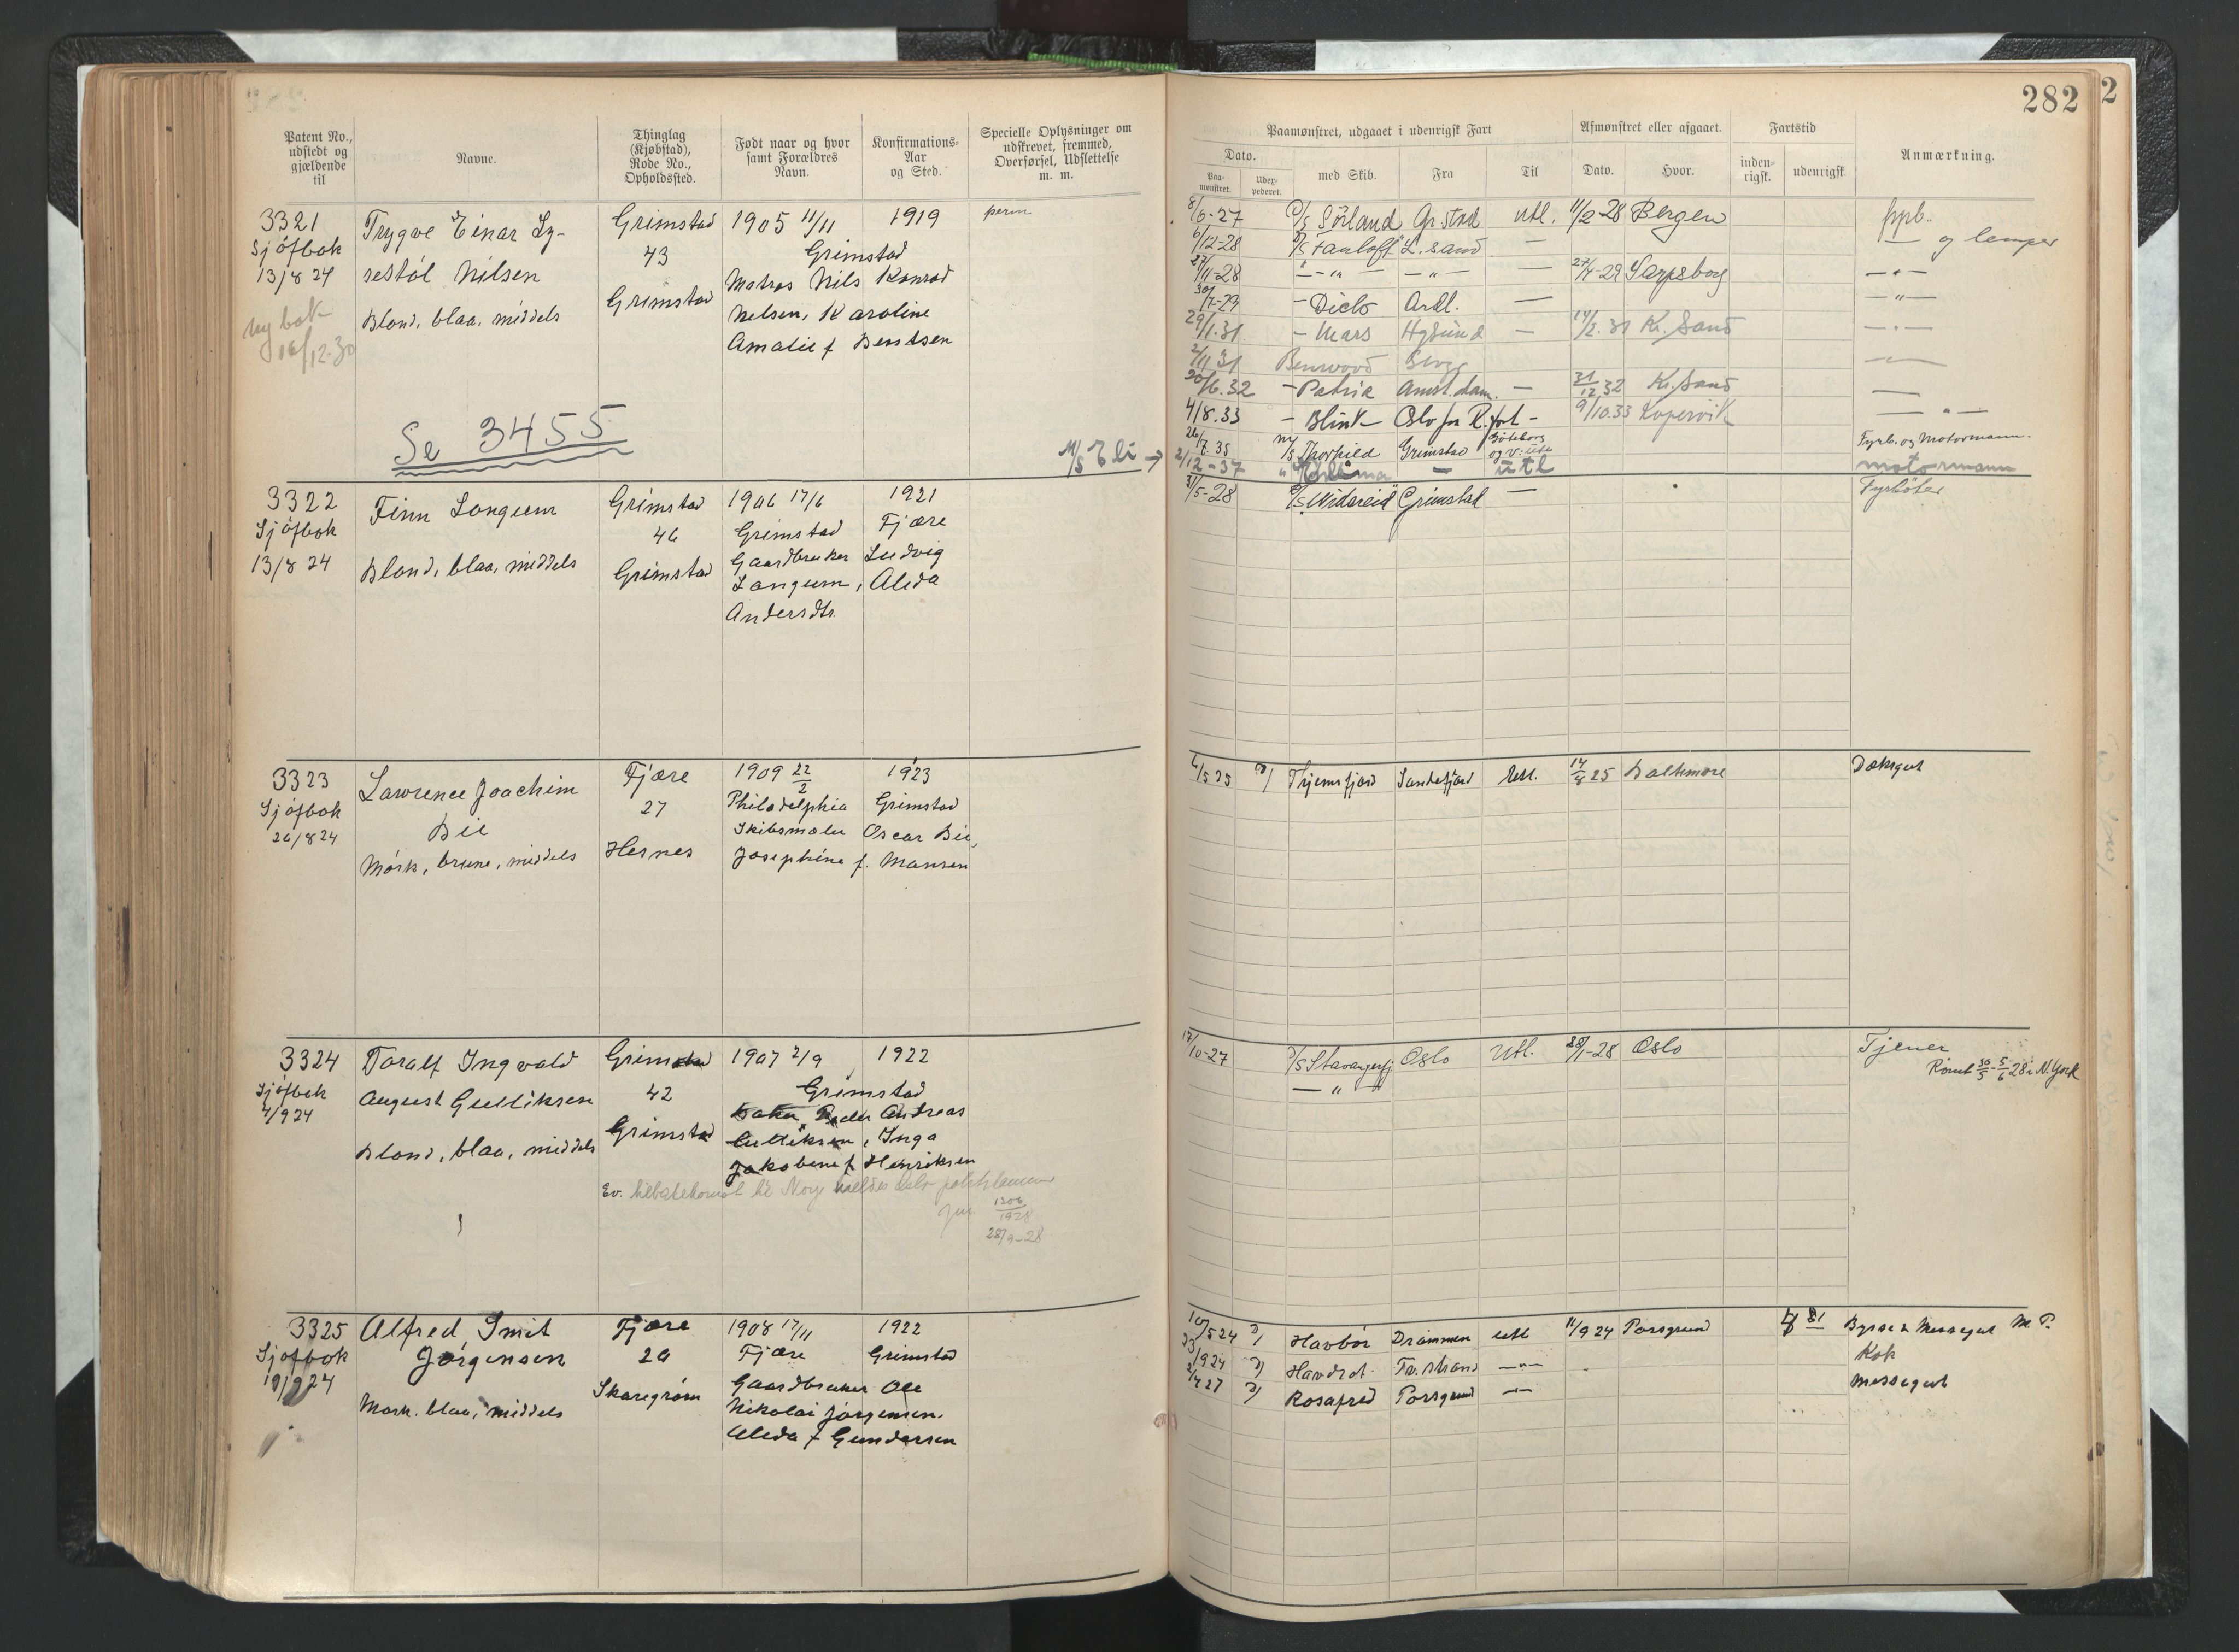 282
2
Patent No., udstedt og gjældende til
Navne.
Thinglag (Kjøbstad), Rode No., Opholdssted.
Født naar og hvor samt Forældres Navn.
Konfirmations-Aar og Sted.
Specielle Oplysninger om udskrevet, fremmed, Overførsel, Udslettelse m. m.
Paamønstret, udgaaet i udenrigsk Fart
Afmønstret eller afgaaet.
Fartstid
Anmærkning.
Dato.
Paa-mønstret.
Udex-pederet.
med Skib.
Fra
Til
Dato.
Hvor.
inden-rigsk.
udenrigsk.
3321
Sjöfbok
13/8 24
ny bok
16/12.30
Trygve Einar Ly-
restöl Nilsen
Blond, blaa, middels
Grimstad
43
Grimstad
1905 11/11
1919
Grimstad
Matros Nils Konrad
Nilsen, Karoline
Amalie f. Berntsen
Se 3455
M/S Eli →
8/6-27 D/S Sörland Gr.stad Utl. 11/2-28 Bergen
6/12-28 — og lemper
27/11-28 — " — — " — — 27/4-29 Sarpsborg — " —
— Dicto Ardl. — — " —
29/1.31 — Mars — 14/2.31 Kr. Sand — " —
2/11 31 Benwood
20/6.32 — Patria Amst.dam. — 31/12 32 Kr. Sand —
4/8.33 — Blink Oslo 9/10.33 Kopervik — " —
26/7.35 M/S Grimstad Göteborg Fyrb. og Motormann.
2/12-37 — utl motormann
3322
Sjöfbok
13/8 24
Finn Longum
Blond, blaa, middels
Grimstad
46
Grimstad
1906 17/6
1921
Grimstad
Fjære
Gaardbruker Ludvig
Longum, Alida
Andersdtr.
3/5-28 Grimstad — Fyrböter
3323
Sjöfbok
26/8 24
Lawrence Joachim
Bie
Mörk, brune, middels
Fjære
27
Hesnes
1909 22/2
1923
Philadelphia
Grimstad
Skibsmaler Oscar Bie,
Josephine f. Hansen
6/5 25 D/ Thjemsfjord Sandefjord Utl. 14/8 25 Baltimore Dæksgut
3324
Sjöfbok
4/9 24
Toralf Ingvald
August Gulliksen
Blond, blaa, middels
Grimstad
42
Grimstad
1907 2/9
1922
Grimstad
Baker Peder Andreas
Gulliksen, Inga
Jakobine f. Henriksen
Ev. tilbakekomst til Norge meldes Oslo politikammer
1206/1928
28/9-28
17/10-27 D/S Stavangerfj Oslo Utl. 28/1-28 Oslo Tjener
— " — Römt 30/5 - 5/6 28 i N. York
3325
Sjöfbok
19/9 24
Alfred Smit
Jörgensen
Mörk. blaa, middels
Fjære
29
Skaregröm
1908 17/11
1922
Fjære
Grimstad
Gaardbruker Ole
Nikolai Jörgensen.
Alida f Gundersen
10/5 24 D/ Havbör Drammen utl 11/9 24 Porsgrund Bysse & Messegut M. P.
23/9 24 D/ Havdrot Fr. strand — " — Kok
2/4 27 D/ Rosafred Porsgrund — " — Messegut